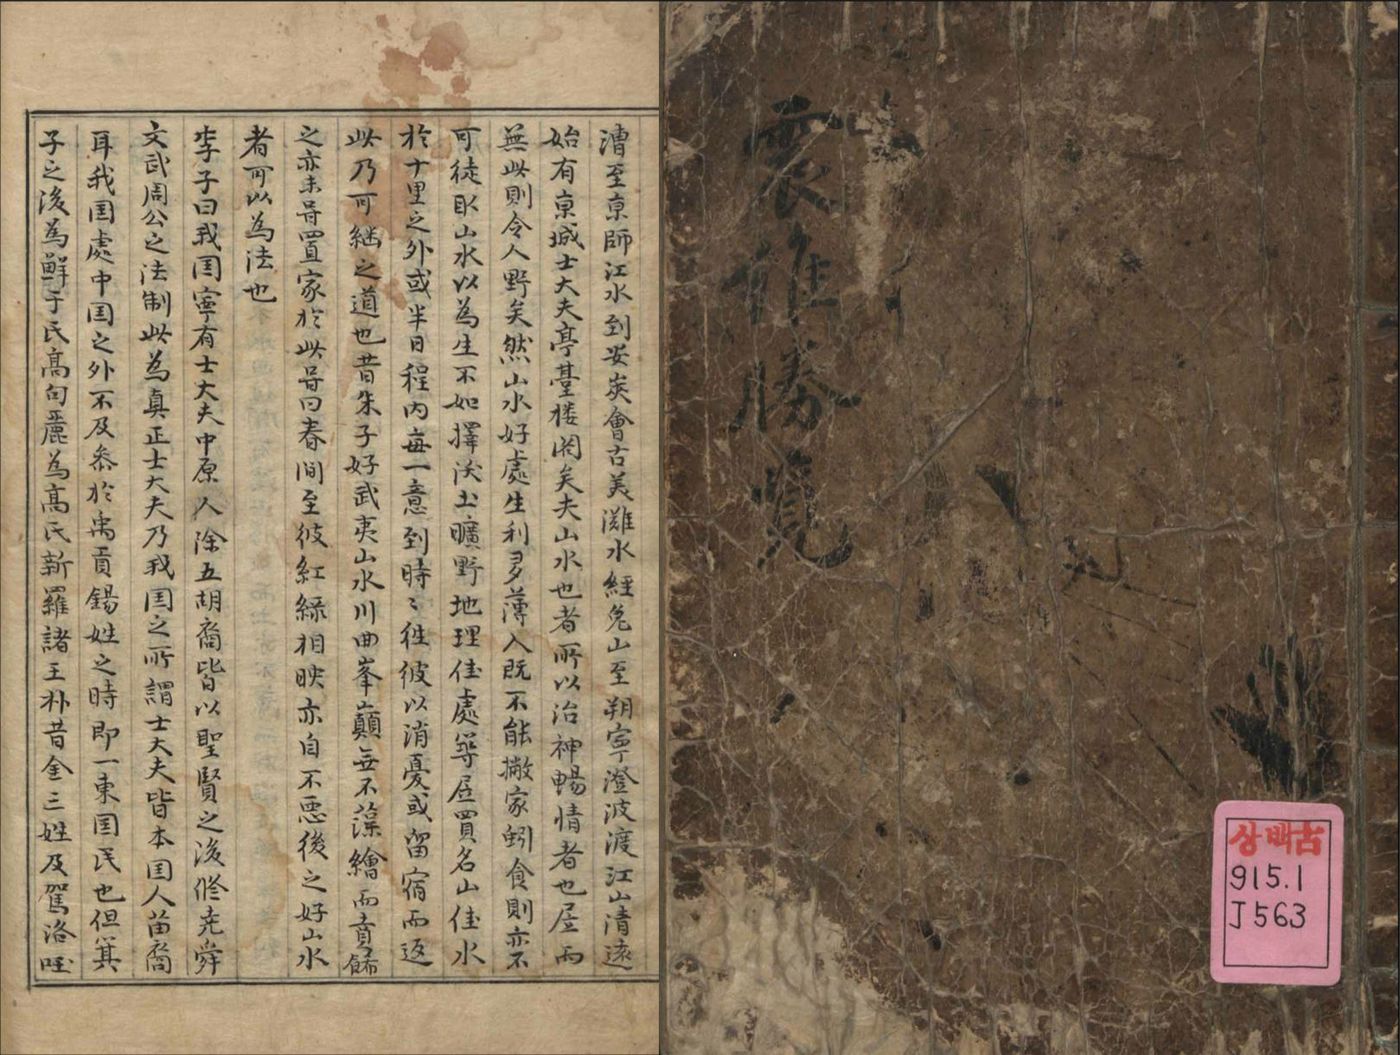 震維勝覽
상백古
915.1
J563
漕至京師江水到安炭會古美灘水經兔山至朔寧澄波渡江山清遠
始有京城士大夫亭臺楼閣矣夫山水也者所以治神暢情者也居而
無此則令人野矣然山水好處生利多薄人既不能撇家蚓食則亦不
可徒取山水以為生不如擇沃土曠野地理佳處築居買名山佳水
於十里之外或半日程內每一意到時〻徃彼以消憂或留宿而返
此乃可継之道也昔朱子好武夷山水川曲峯巔無不藻繪而賁餙
之亦未甞置家於此甞曰春間至彼紅綠相映亦自不悪後之好山水
者可以為法也
李子曰我国寧有士大夫中原人除五胡裔皆以聖賢之後修尭舜
文武周公之法制此為真正士大夫乃我国之所謂士大夫皆本国人苗裔
耳我国處中国之外不及叅於禹貢錫姓之時即一東国民也但箕
子之後為鮮于氏高句麗為高氏新羅諸王朴昔金三姓及駕洛